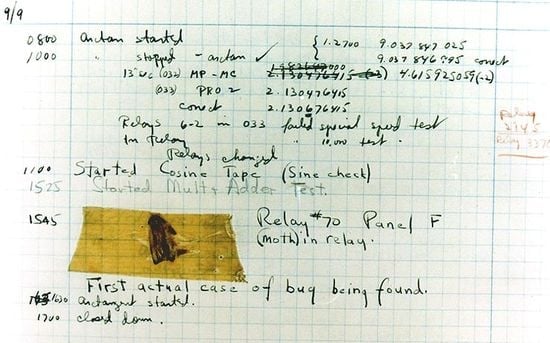 9/9
0800 antan started { 1.2700 9.037 847 025
1000 " stopped - antan ✓ 9.037 846 795 conect
13"uc (032) MP - MC 2.130476415 (-3) 4.615925059(-2)
(033) PRO 2 2.130476415
conect 2.130676415
Relays 6-2 in 033 failed special speed test
In Relay " 10,000 test.
Relays changed
Relay
2145
Relay 3370
1100 Started Cosine Tape (Sine check)
1525 Started Mult+ Adder Test.
1545 Relay #70 Panel F
(Moth) in relay.
First actual case of bug being found.
1630 antangent started.
1700 closed down.